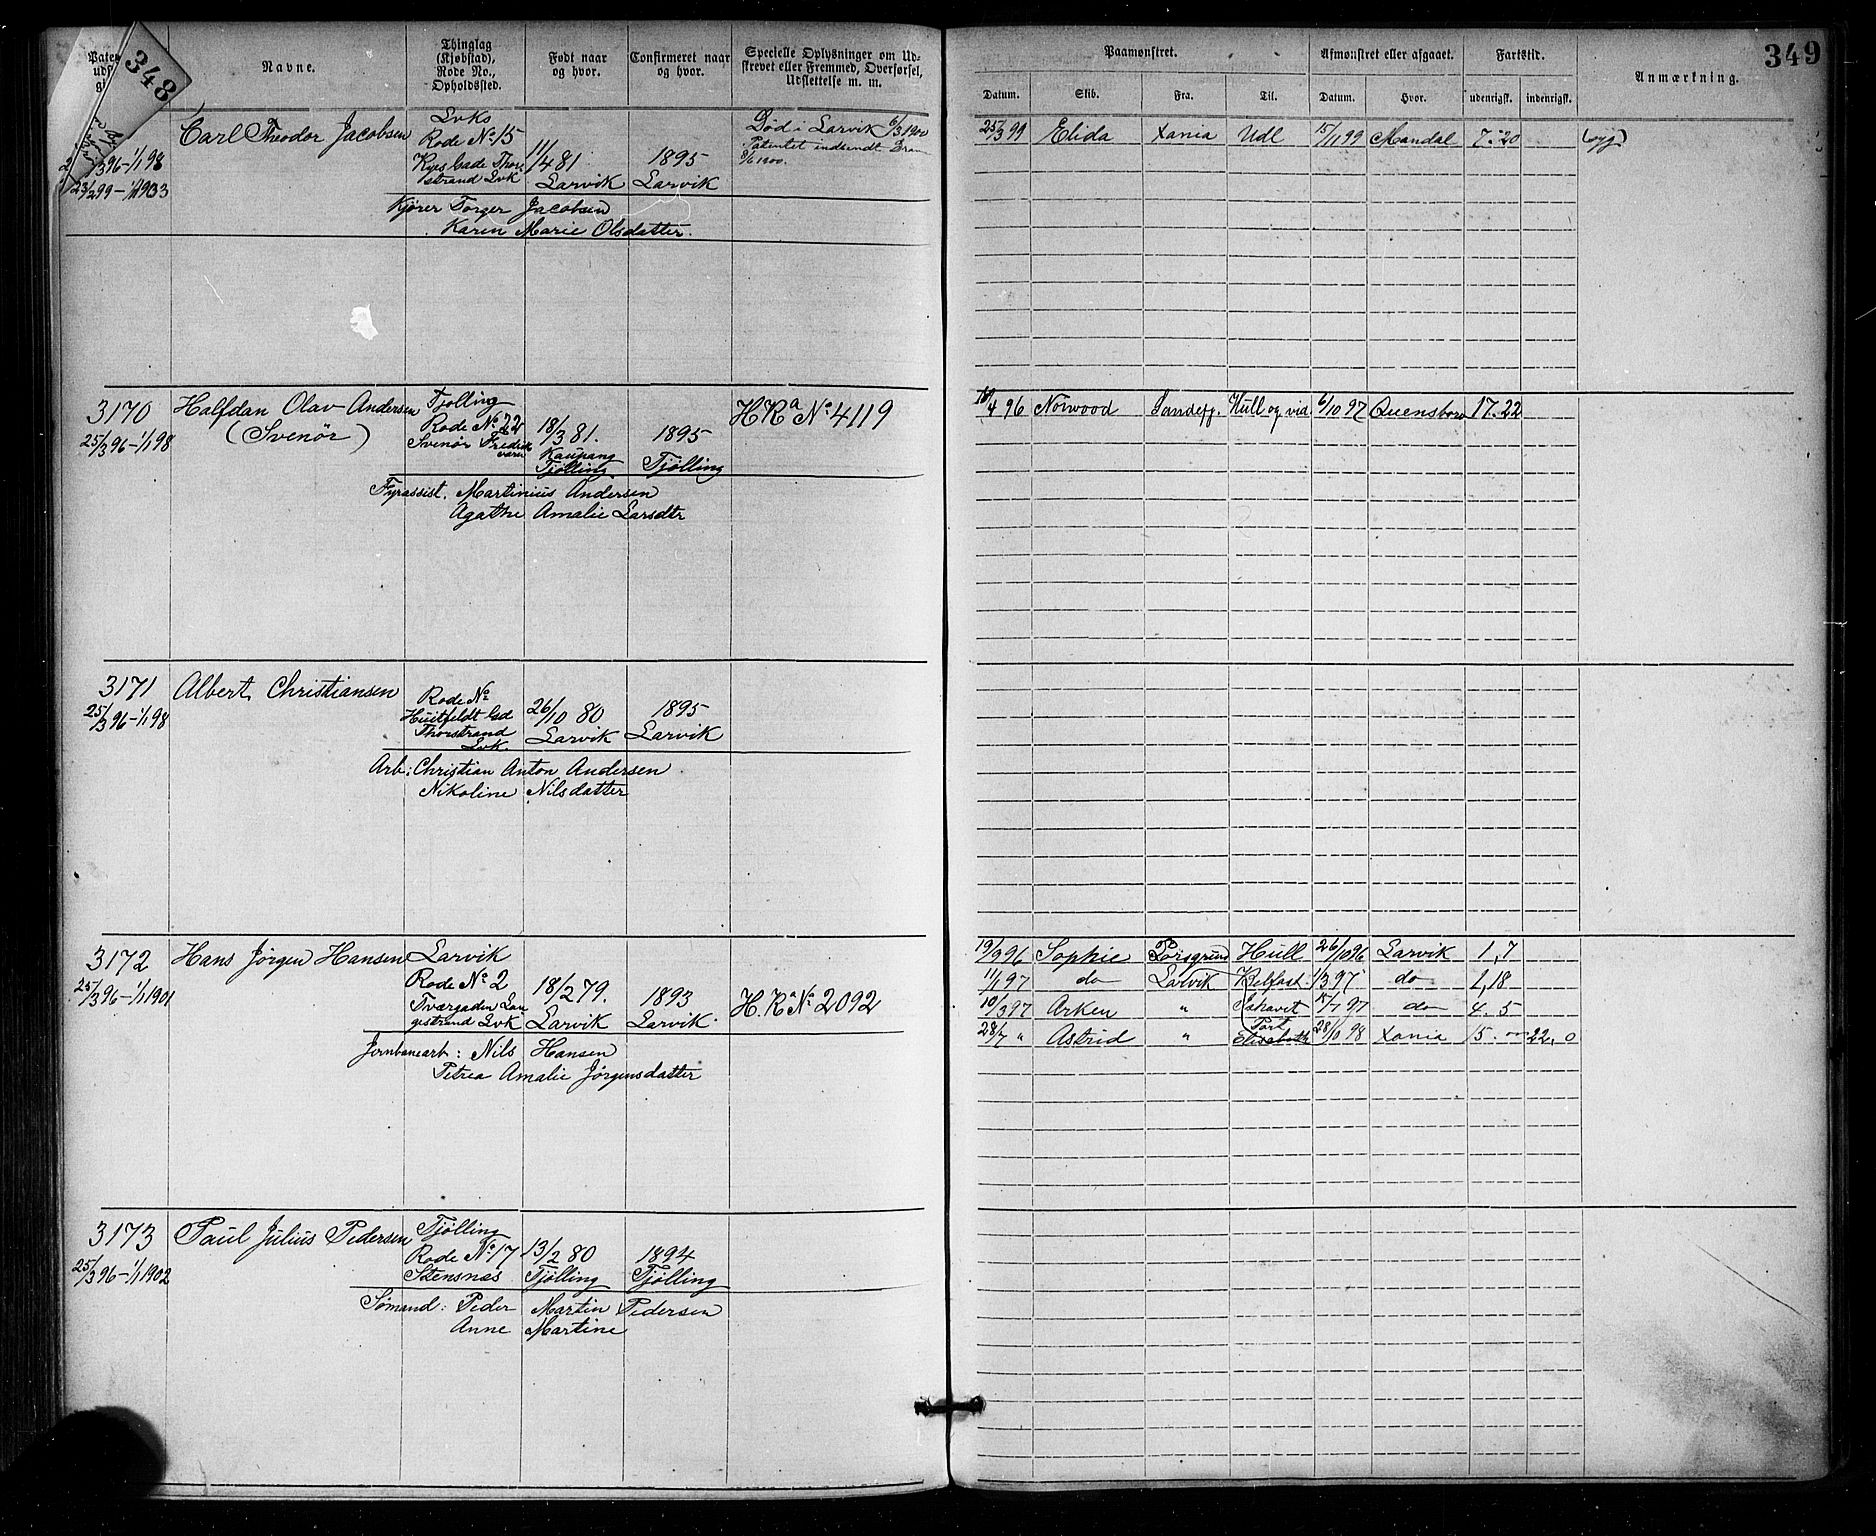 348
349
Navne.
Thinglag
(Kjøbstad),
Rode No.,
Opholdssted.
Født naar
og hvor.
Confirmeret naar
og hvor.
Specielle Oplysninger om Ud-
skrevet eller Fremmed, Overførsel,
Udslettelse m. m.
Paamønstret.
Afmønstret eller afgaaet.
Fartstid.
Anmærkning.
Datum. Skib. Fra. Til. Datum. Hvor. udenrigsk. indenrigsk.
Carl Theodor Jacobsen
23/2 99 – 1/1 1933
Lvks
Rode No. 15
strand Lvk
11/4 81
Larvik
1895
Larvik
Død i Larvik 6/3 1900
Patentet indsendt
Kjører Torger Jacobsen
Karen Marie Olsdatter.
25/3 99 Elida Xania Udl 15/11 99 Mandal 7-20 (syg)
3170
25/3 96 – 1/1 98
Halfdan Olav Andersen
(Svenør)
Tjølling
Rode No. 22
Svenør Fredriks
værn
18/3 81.
Kaupang
Tjølling
1895
Tjølling
H Ra No. 4119
Fyrassist. Martinius Andersen
Agathe Amalie Larsdtr
4 96 Norwood Sandefj. Hull og vid. 6/10 97 Queensboro 17-22
3171
25/3 96 – 1/1 98
Albert Christiansen
Rode No.
Huitfeldt Gad
Thorstrand
Lvk
26/10 80
Larvik
1895
Larvik
Arb: Christian Anton Andersen
Nikoline Nilsdatter
3172
25/3 96 – 1/1 1901
Hans Jørgen Hansen
Larvik
Rode No. 2
Tværgaden Lan
gestrand Lvk
18/2 79.
Larvik
1893
Larvik.
H. Ra No. 2092
Jernbanearb: Nils Hansen
Petrea Amalie Jørgensdatter
19/9 96 Sophie Porsgrund Hull 26/10 96 Larvik 1,7
11/1 97 do Larvik Belfast 1/3 97 do 1,18
10/3 97 Arken " 17/7 97 do 4. 5
28/7 " Astrid " Port Elisabeth 28/10 98 Xania 15. 22. 0
3173
25/3 96 – 1/1 1902
Paul Julius Pedersen
Tjølling
Rode No. 17
Stensnæs
13/2 80
Tjølling
1894
Tjølling
Sømand: Peder Martin Pedersen
Anne Martine